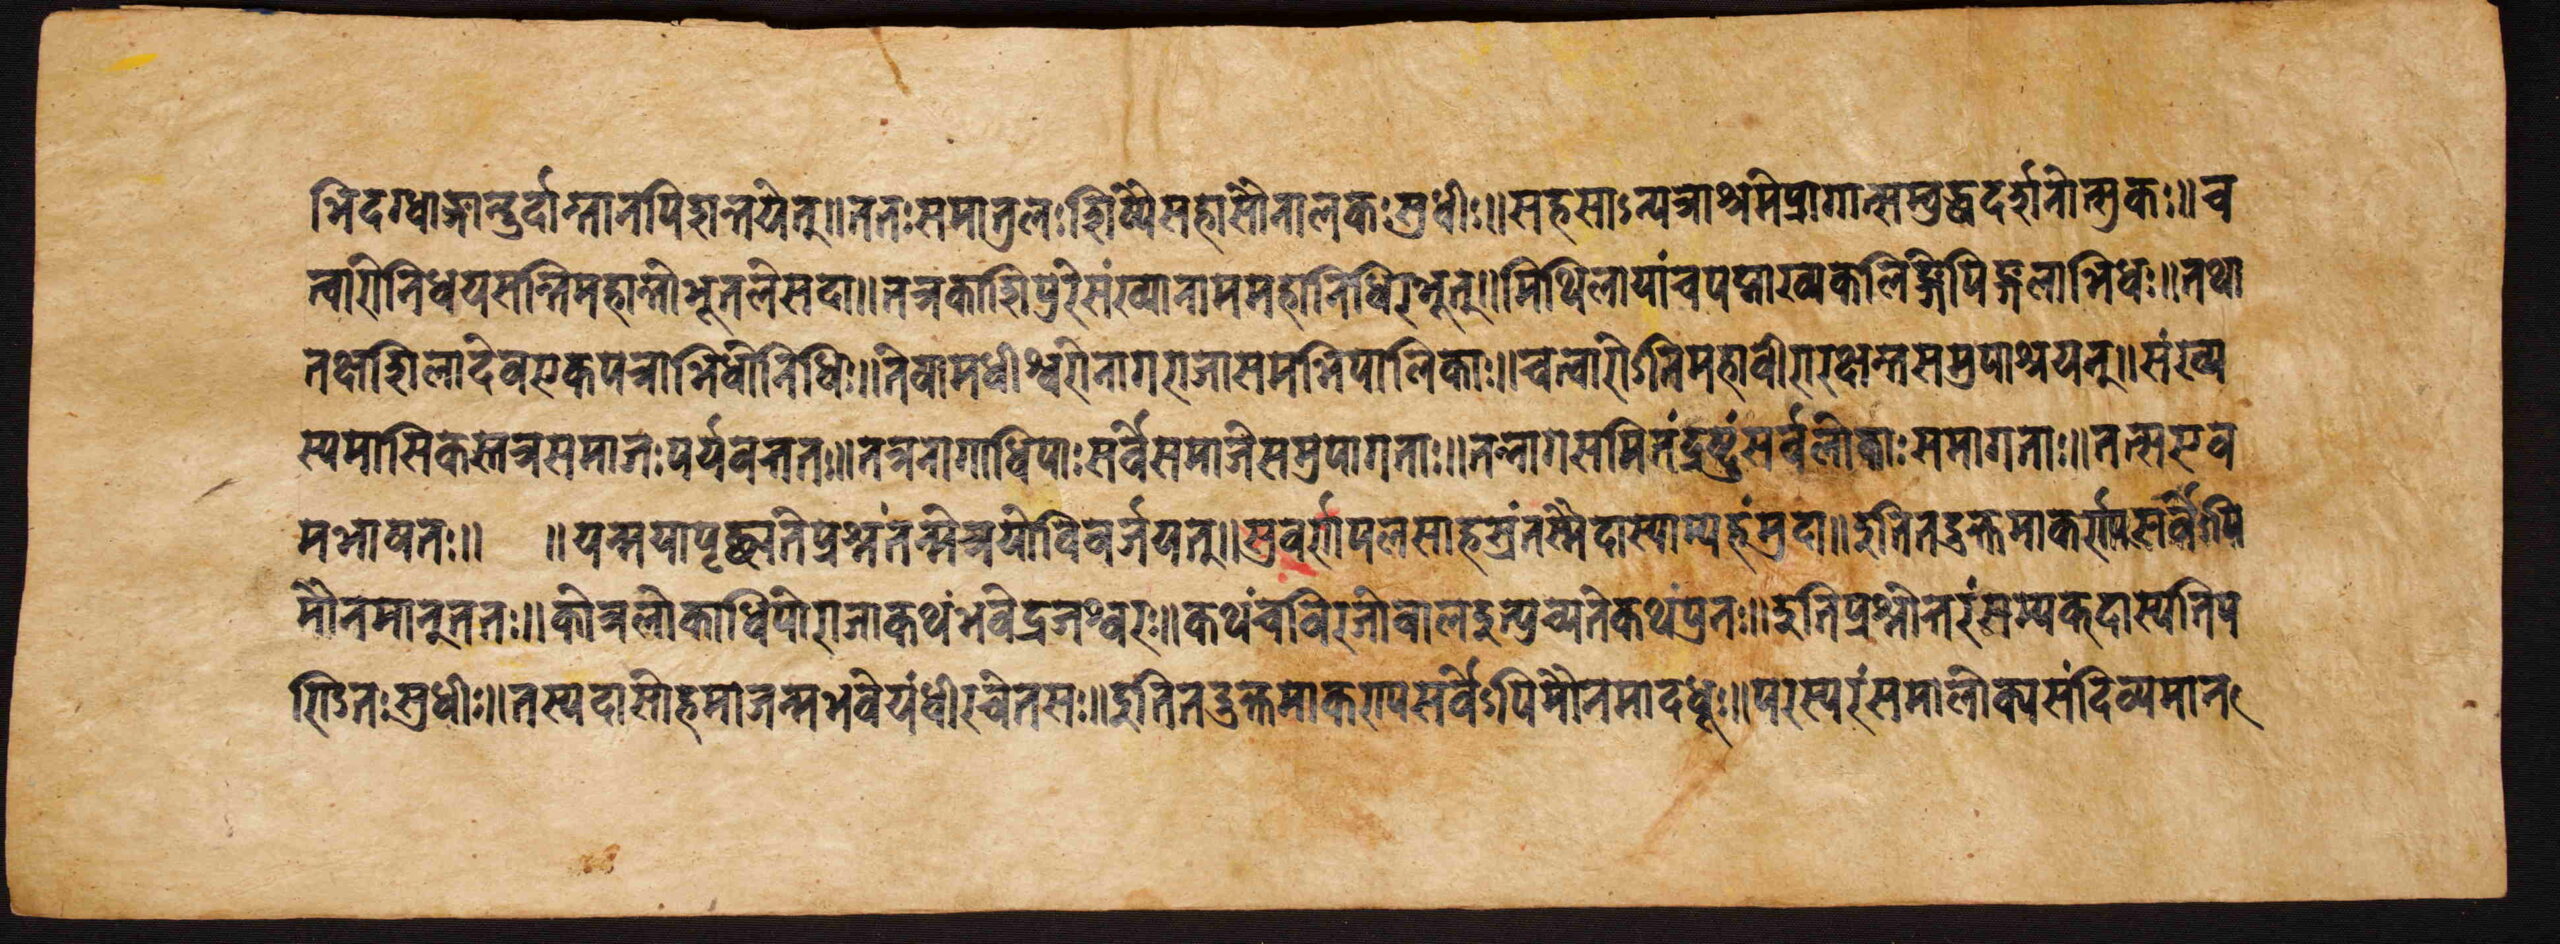 भिदग्धाङ्गान्दुर्दान्तानपिशान्तयेत्॥ततःसमातुलःशिष्यैःसहासौनालकःसुधीः॥सहसाऽन्यत्राश्रमेप्रागात्सम्बुद्धदर्शनोत्सुकः॥च
त्वारोनिधयसन्तिमहान्तोभूतलेसदा॥तत्रकाशिपुरेसंख्यानाममहानिधिरभूत्॥मिथिलायांचपद्माख्यकलिङ्गेपिङ्गलाभिधः॥तथा
तक्षशिलादेवएकपत्राभिधोनिधिः॥तेषामधीश्वरोनागराजासमभिपालिकाः॥चत्वारोऽतिमहावीरारक्षान्तसमुपाश्रयत्॥संख्य
स्यमासिकेस्तत्रसमाजःपर्यवर्त्ततः॥तत्रनागाधिपाःसर्वेसमाजेसमुपागताः॥तन्नागेसमितंद्रष्टुंसर्वलोकाःसमागताः॥तत्सएव
मभाषतः॥ ॥यन्मयापृच्छ्यतेप्रश्नंतन्मेत्रयोविवर्जयत्॥सुवर्णपलसाहस्रंतस्मैदास्याम्यहंमुदा॥इतितदुक्तमाकर्ण्यसर्वेऽपि
मौनमानूततः॥कोत्रलोकाधिपोराजाकथंभवेद्रजश्वरः॥कथंचविरजोबालइत्युच्यतेकथंपुनः॥इतिप्रश्नोत्तरंसम्यक्दास्यतिप
रिऽतःसुधीः॥तस्यदासोहमाजन्मभवेयंधीरचेतसः॥इतितदुक्तमाकर्ण्यसर्वेऽपिमौनमादधूः॥परस्परंसमालोक्यसंदिव्यमान